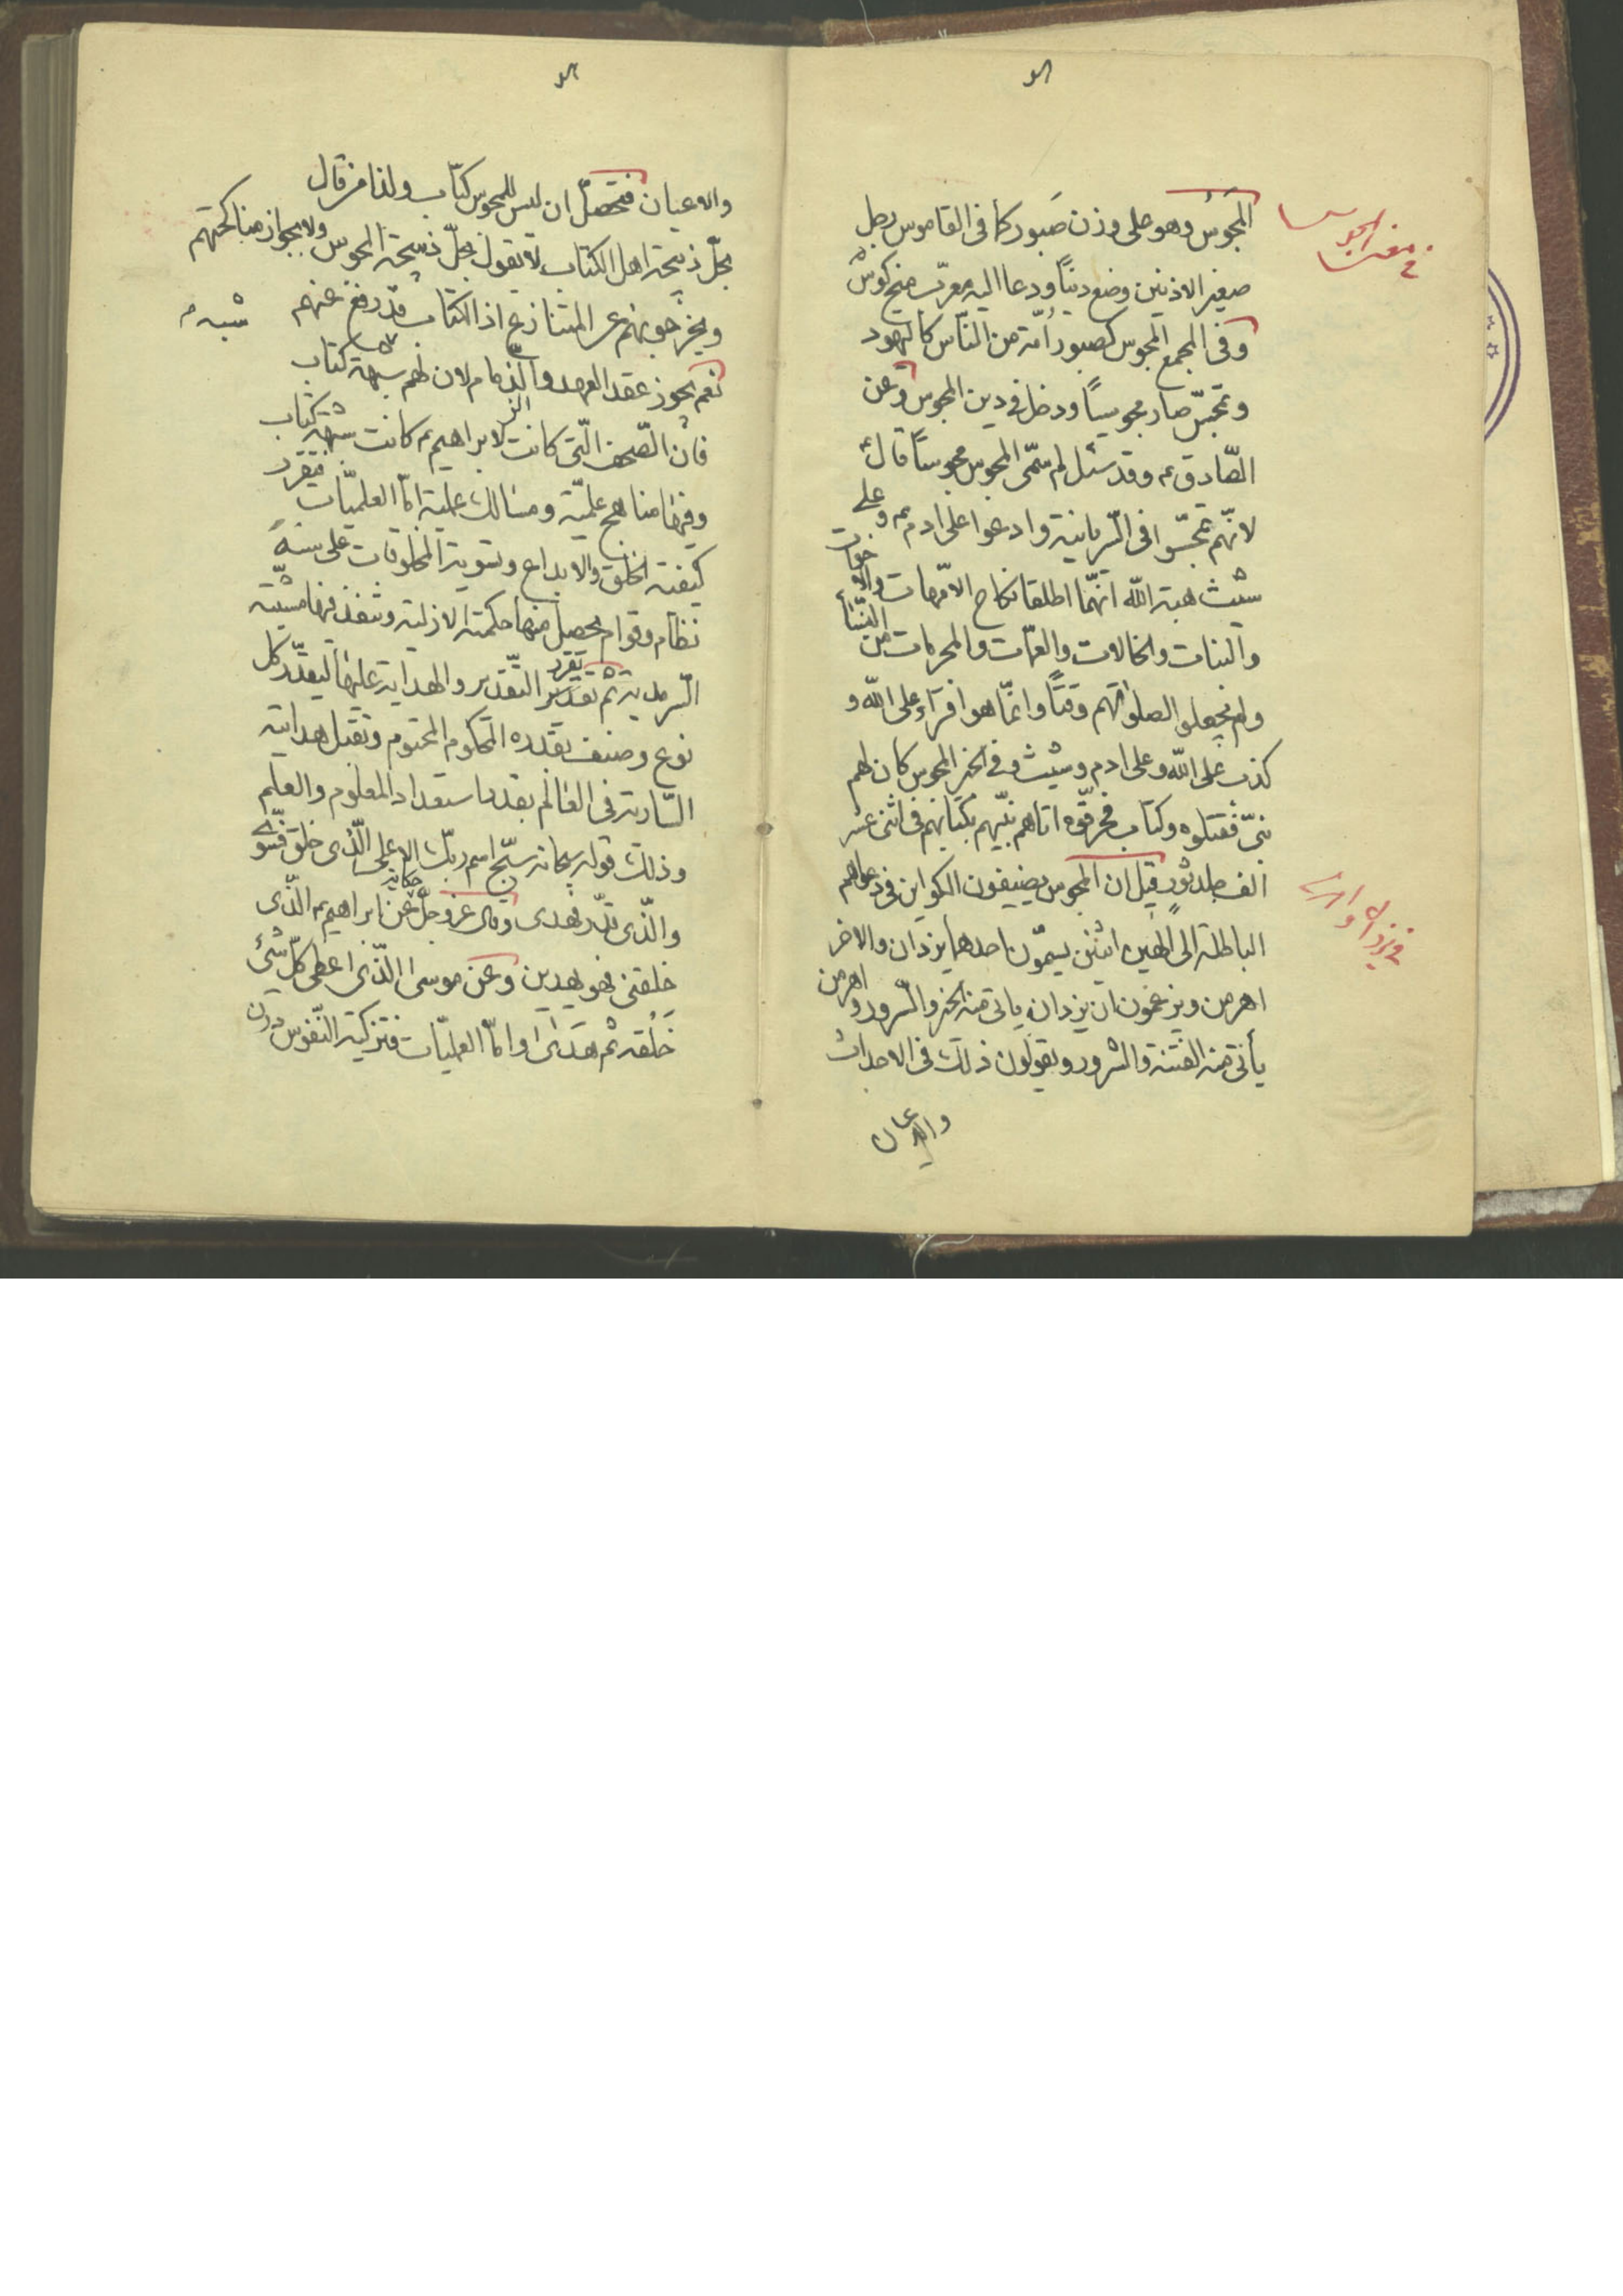 المجوس وهو على وزن صَبور كما فى القاموس رجل
صغير الاذنين وضع ديناً ودعا اليه معرّب منج كوش
وفى المجمع المجوس كصبور اُمّة من النّاس كاليهود
وتمجّس صار مجوسياً ودخل فى دين المجوس وعن
الصّادق ع وقد سئل لم سمّى المجوس مجوساً قال
لانّهم تمجّسوا فى السّريانية وادعوا على ادم ع وعلى
شيث هبة الله انهّما اطلقا نكاح الامّهات والاخوات
والبنات والخالات والعمّات والمحرمات من النّساء
ولم يجعلوا لصلواتهم وقتاً وانمّا هو افتراء على الله و
كذب على الله وعلى ادم وشيث وفى الخبر المجوس كان لهم
نبىّ فقتلوه وكتاب فحرّقوه اتاهم نبيّهم بكتابهم فى اثنى عشر
الف جلد ثورٍ قيل ان المجوس يضيفون الكواين فى دعواهم
الباطلة الى الهين اثنين يسمّون احدهما يزدان والاخر
اهرمن ويزعمون ان يزدان ياتى منه الخير والسّرور و اهرمن
يأتى منه الفتنة والشرور ويقولون ذلك فى الاحداث
والاعيان
والاعيان فتحصّل ان ليس للمجوس كتاب ولذا من قال
بحلّ ذبيحة اهل الكتاب لا يقول بحلّ ذبيحة المجوس ولا بجواز مناكحتهم
ويخرجونهم عن المتنازع اذ الكتاب قد رفع عنهم
نعم يجوز عقد العهد والذّمام لان لهم شبهة كتاب
فان الصّحف الّتى كانت لابراهيم ع كانت شبهة كتاب
وفيها مناهج علميّة ومسالك عملية امّا العلميّات فتقرر
كيفية الخلق والابداع وتسوية المخلوقات على سنة
نظام وقوام يحصل منها حكمته الازلية وتنفذ فيها مشيّته
السّرمدية ثم تقدير التّقدير والهداية عليها ليقدّر كل
نوع وصنف بقدره المحكوم المحتوم وتقبل هدايته
السّارية فى العالم بقدر استعداد المعلوم والعلم
وذلك قوله سبحانه سبّح اسم ربّك الاعلى الّذى خلق فسّوى
والّذى قدّر فهدى وقال عزّ وجلّ حكاية عن ابراهيم ع الّذى
خلقنى فهو يهدين وعن موسى الّذى اعطى كلّ شئ
خلقه ثم هدى وامّا العمليّات فتزكية النّفوس